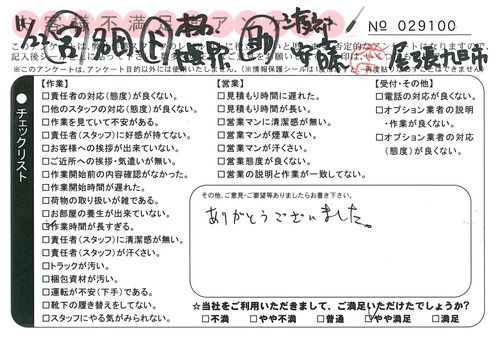 お客様不満足アンケート
№ 029100
尾張旭市
チェックリスト
【作業】
□責任者の対応(態度)が良くない。
□他のスタッフの対応(態度)が良くない。
□作業を見ていて不安がある。
□責任者(スタッフ)に好感が持てない。
□お客様への挨拶が出来ていない。
□ご近所への挨拶・気遣いが無い。
□作業開始前の内容確認がなかった。
□作業開始時間が遅れた。
□荷物の取り扱いが雑である。
□お部屋の養生が出来ていない。
☑作業時間が長すぎる。
□責任者(スタッフ)に清潔感が無い。
□責任者(スタッフ)が汗くさい。
□トラックが汚い。
□梱包資材が汚い。
□運転が不安(下手)である。
□靴下の履き替えをしてない。
□スタッフにやる気がみられない。
【営業】
□見積もり時間に遅れた。
□見積もり時間が長い。
□営業マンに清潔感が無い。
□営業マンが煙草くさい。
□営業マンが汗くさい。
□営業態度が良くない。
□営業の説明と作業が一致してない。
【受付・その他】
□電話の対応が良くない。
□オプション業者の説明
・作業が良くない。
□オプション業者の対応
(態度)が良くない。
その他、ご意見・ご要望等ありましたらお書き下さい。
ありがとうございました。
☆当社をご利用いただきまして、ご満足いただけたでしょうか?
□不満 □やや不満 □普通 ☑やや満足 □満足